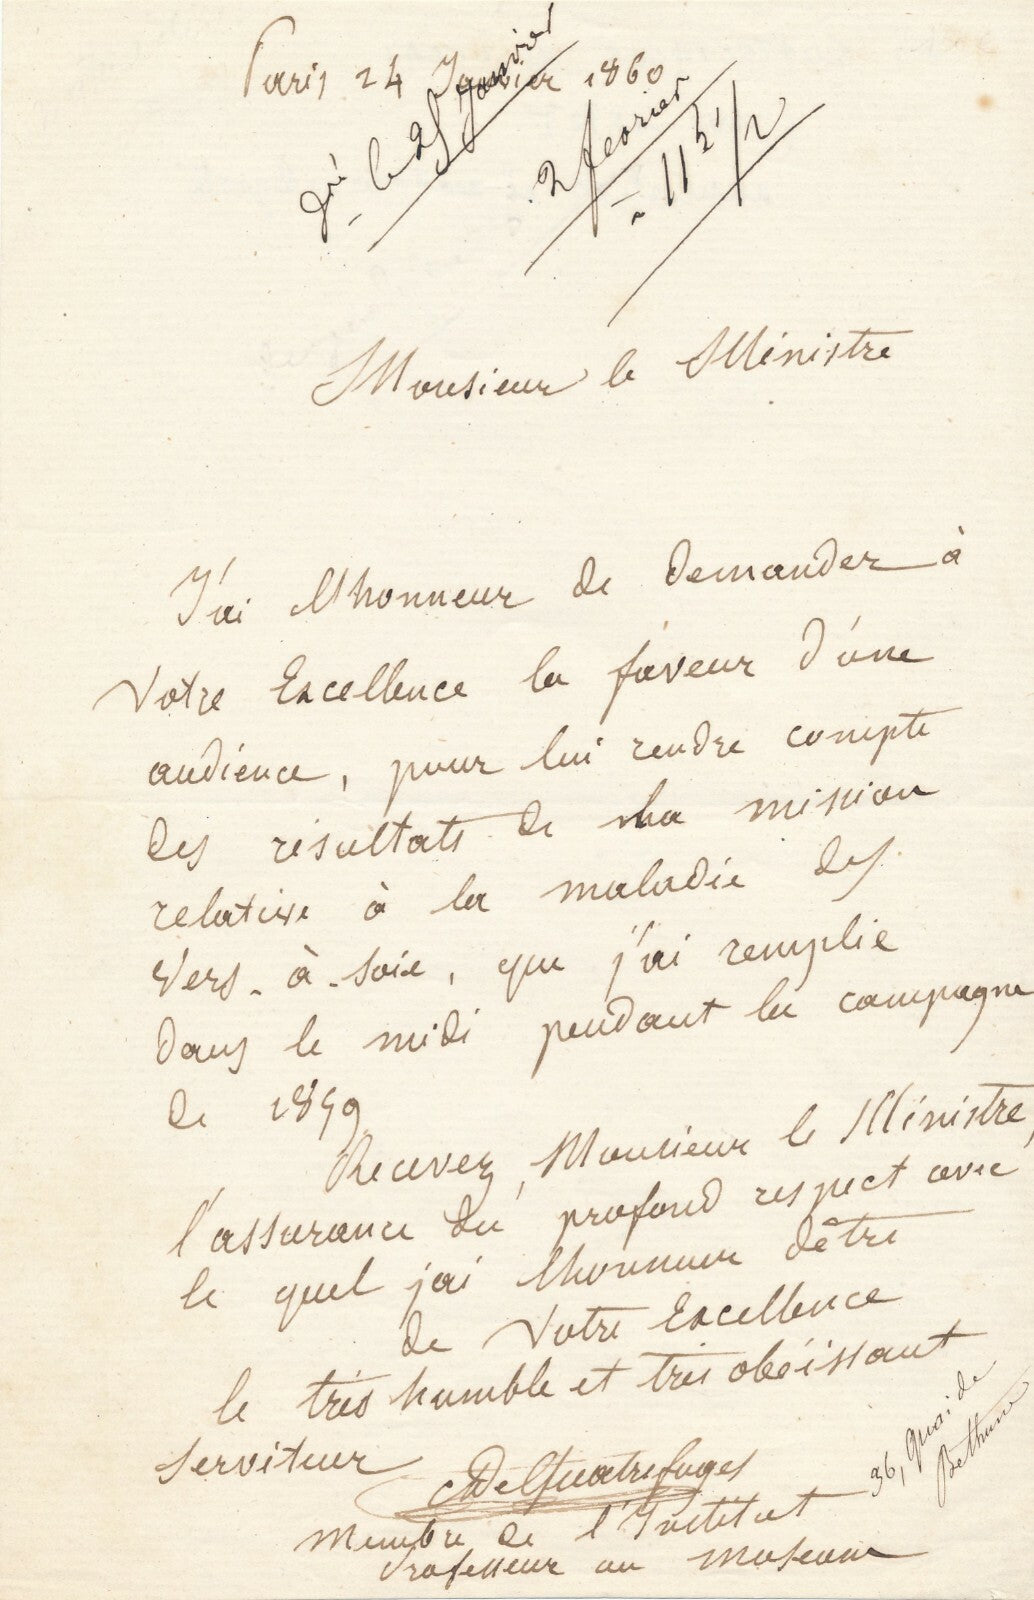 Paris 24 Janvier 1860
le 25 Janvier
2 fevrier
à 11 h 1/2
Monsieur le Ministre
J'ai l'honneur de demander à
Votre Excellence la faveur d'une
audience, pour lui rendre compte
des résultats de ma mission
relative à la maladie des
Vers-à-soie, que j'ai remplie
dans le midi pendant la campagne
de 1859
Recevez, Monsieur le Ministre,
l'assurance du profond respect avec
le quel j'ai l'honneur d'être
de Votre Excellence
le très humble et très obéissant
serviteur
A De Quatrefages
Membre de l'Institut
Professeur au Museum
36, Quai de
Bethune